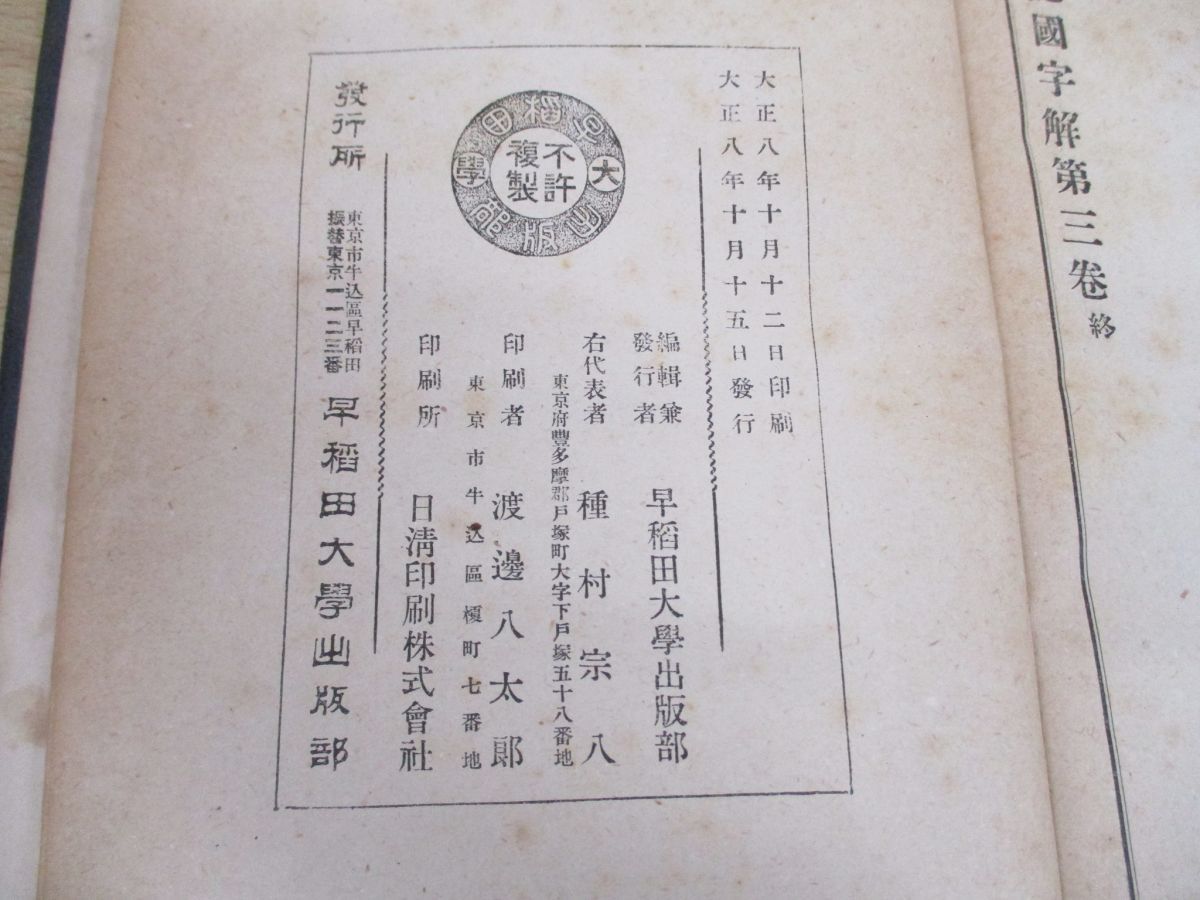 國字解第三卷終
大正八年十月十二日印刷
大正八年十月十五日發行
早稻田
大學
出版部
不許
複製
編輯兼
發行者
早稻田大學出版部
右代表者 種村宗八
東京府豐多摩郡戶塚町大字下戶塚五十八番地
印刷者 渡邊八太郎
東京市牛込區榎町七番地
印刷所 日淸印刷株式會社
發行所
東京市牛込區早稻田
振替東京一一二三番
早稻田大學出版部